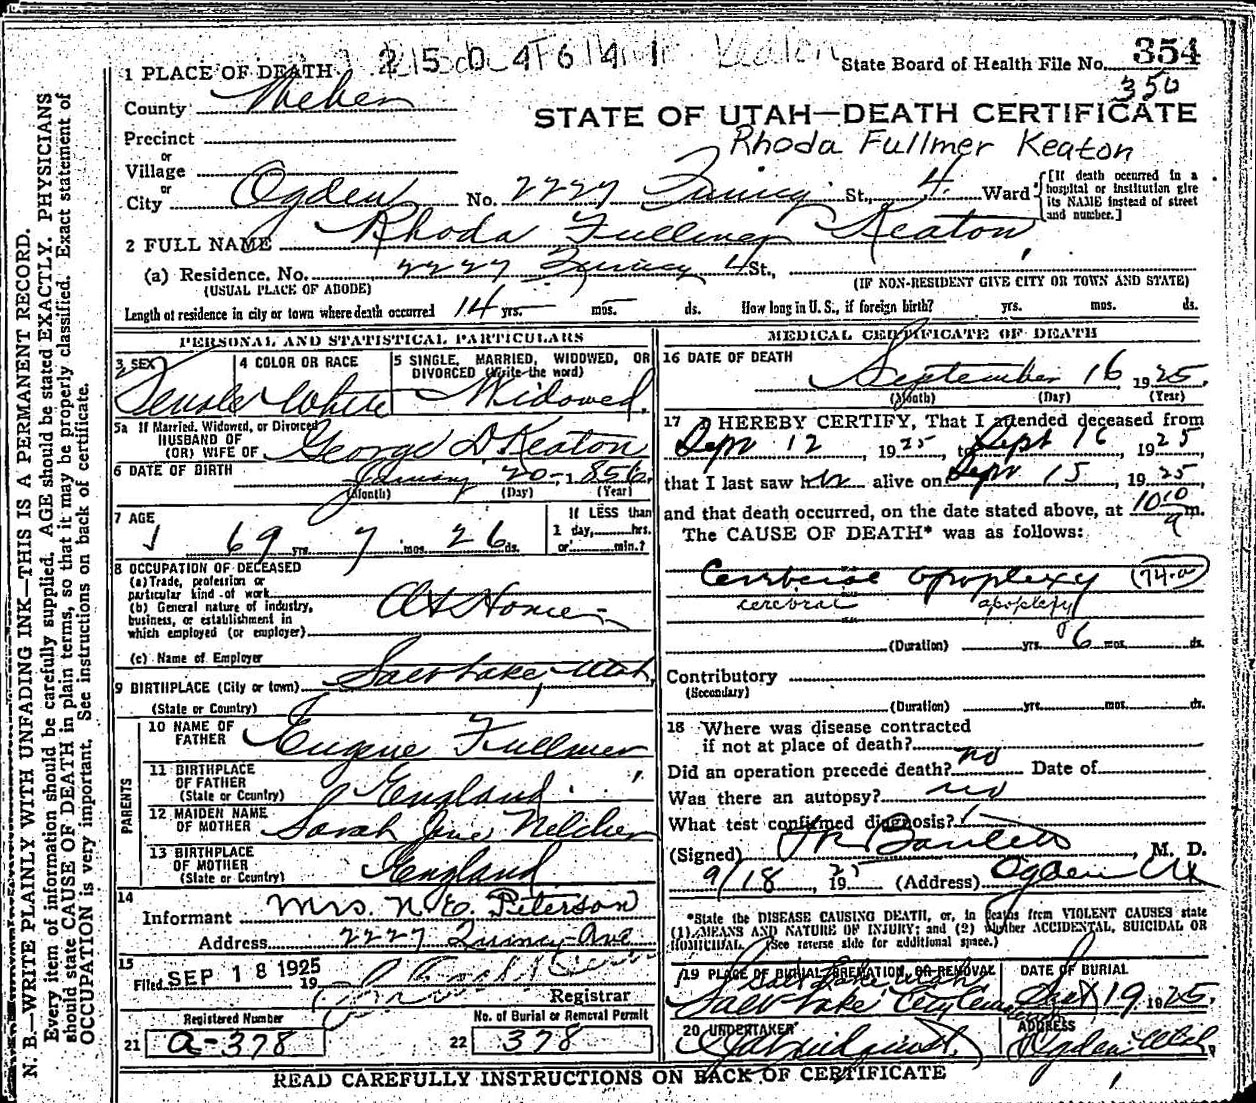 354
State Board of Health File No.
350
2 5 0 4 6 4 1
Keaton
1 PLACE OF DEATH
County Weber
STATE OF UTAH—DEATH CERTIFICATE
Precinct
Rhoda Fullmer Keaton
or
Village
or
City Ogden No. 2227 Quincy St., 4 Ward
[If death occurred in a hospital or institution give its NAME instead of street and number.]
2 FULL NAME Rhoda Fullmer Keaton
(a) Residence. No. 2227 Quincy 4 St.,
(USUAL PLACE OF ABODE) (IF NON-RESIDENT GIVE CITY OR TOWN AND STATE)
Length of residence in city or town where death occurred 14 yrs. mos. ds. How long in U. S., if foreign birth? yrs. mos. ds.
PERSONAL AND STATISTICAL PARTICULARS
3 SEX Female
4 COLOR OR RACE White
5 SINGLE, MARRIED, WIDOWED, OR DIVORCED (Write the word) Widowed
5a If Married, Widowed, or Divorced
HUSBAND OF
(OR) WIFE OF George D. Keaton
6 DATE OF BIRTH January 20 - 1856
(Month) (Day) (Year)
7 AGE 69 yrs. 7 mos. 26 ds.
If LESS than
1 day, hrs.
or min.?
8 OCCUPATION OF DECEASED
(a) Trade, profession or
particular kind of work
(b) General nature of industry,
business, or establishment in
which employed (or employer) At Home
(c) Name of Employer
9 BIRTHPLACE (City or town) Salt Lake, Utah.
(State or Country)
PARENTS
10 NAME OF
FATHER Eugene Fullmer
11 BIRTHPLACE
OF FATHER England
(State or Country)
12 MAIDEN NAME
OF MOTHER Sarah Jane
13 BIRTHPLACE
OF MOTHER England
(State or Country)
14
Informant Mrs. N. E. Peterson
Address 2227 Quincy Ave
15
Filed SEP 18 1925 19
Registrar
Registered Number
21 a-378
No. of Burial or Removal Permit
22 378
MEDICAL CERTIFICATE OF DEATH
16 DATE OF DEATH
September 16 1925.
(Month) (Day) (Year)
17 I HEREBY CERTIFY, That I attended deceased from
Sept 12, 1925, to Sept 16, 1925
that I last saw her alive on Sept 15, 1925
and that death occurred, on the date stated above, at 10 10 a m.
The CAUSE OF DEATH* was as follows:
Cerebral apoplexy (74-a)
cerebral apoplexy
(Duration) yrs. 6 mos. ds.
Contributory
(Secondary)
(Duration) yrs. mos. ds.
18 Where was disease contracted
if not at place of death?
Did an operation precede death? no Date of
Was there an autopsy? no
What test confirmed diagnosis?
(Signed) M. D.
9/18, 1925 (Address) Ogden Ut
*State the DISEASE CAUSING DEATH, or, in deaths from VIOLENT CAUSES state
(1) MEANS AND NATURE OF INJURY; and (2) whether ACCIDENTAL, SUICIDAL OR
HOMICIDAL. (See reverse side for additional space.)
19 PLACE OF BURIAL, CREMATION, OR REMOVAL
Salt Lake Utah
Salt Lake City Cemetery
DATE OF BURIAL
Sept 19 1925.
20 UNDERTAKER
ADDRESS
Ogden Utah,
READ CAREFULLY INSTRUCTIONS ON BACK OF CERTIFICATE
N. B.—WRITE PLAINLY WITH UNFADING INK—THIS IS A PERMANENT RECORD.
Every item of information should be carefully supplied. AGE should be stated EXACTLY. PHYSICIANS
should state CAUSE OF DEATH in plain terms, so that it may be properly classified. Exact statement of
OCCUPATION is very important. See instructions on back of certificate.